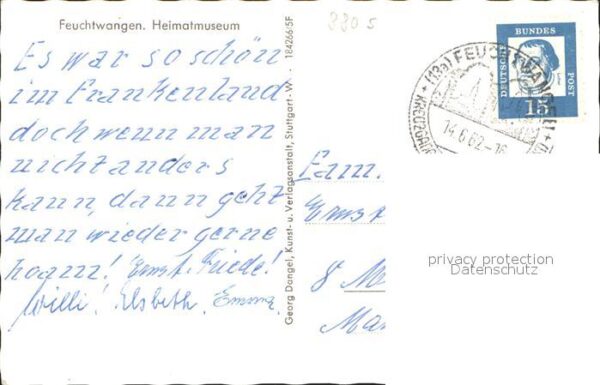 Feuchtwangen. Heimatmuseum
330 s
Es war so schön
im Frankenland
doch wenn man
nicht anders
kann, dann geht
man wieder gerne
haam! Ernst. Friede!
Willi! Elsbeth. Emma
Georg Dangel, Kunst- u. Verlagsanstalt, Stuttgart-W. · 184266/5F
BUNDES
DEUTSCHE
POST
15
(13a) FEUCHTWANGEN
14.6.62-16
KREUZGANG
Fam.
Ernst
8 M
Ma
privacy protection
Datenschutz